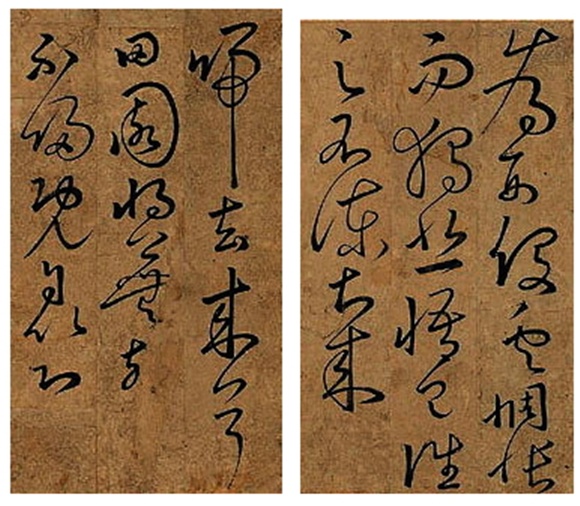 歸去來兮
田園將蕪胡
不歸既自以心
為形役奚惆悵
而獨悲悟已往
之不諫知來